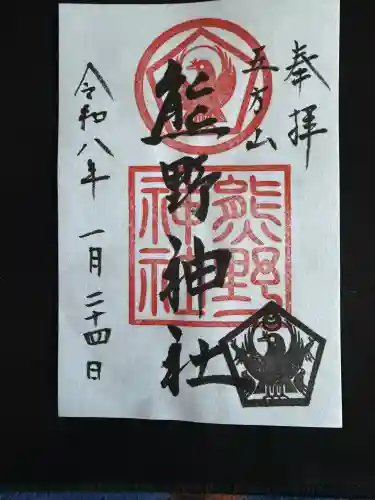 奉拝
五方山
熊野神社
熊野
神社
令和八年
一月二十四日